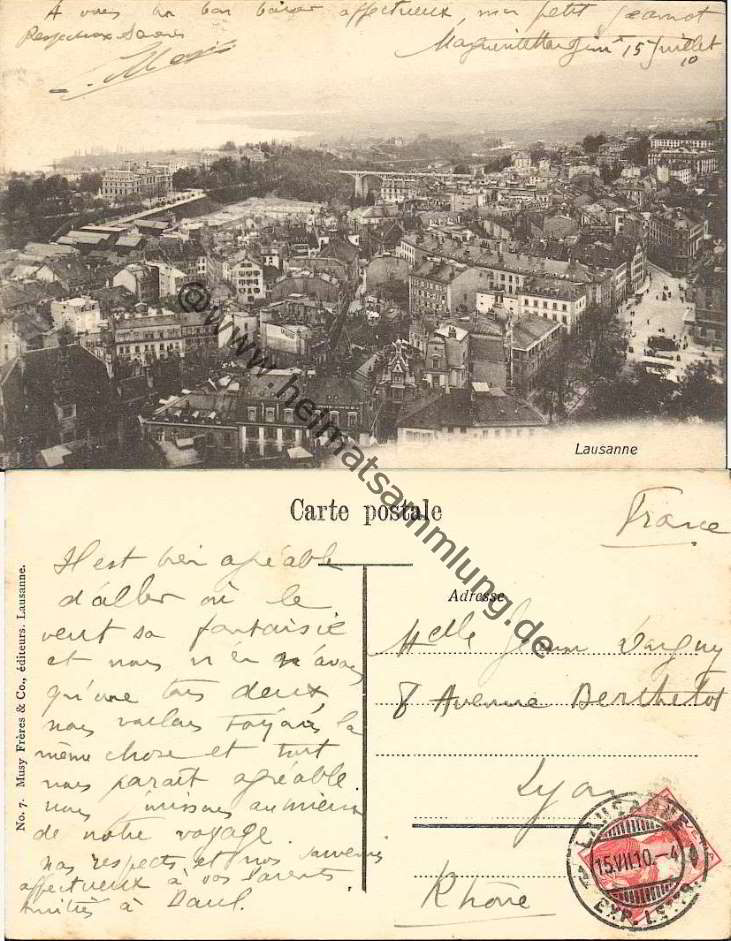 A vous un bon baiser affectueux, mon petit Jeannot
Respectueux Saluts
Marguerite 15 Juillet
10
Lausanne
© www.heimatsammlung.de
Carte postale
France
Adresse
No. 7. Musy Frères & Co., éditeurs. Lausanne.
Il est bien agréable
d'aller où le
veut sa fantaisie
et nous n'en n'avons
qu'une tous deux
nous voulons toujours la
même chose et tout
nous paraît agréable.
nous jouissons au mieux
de notre voyage.
nos respects et nos souvenirs
affectueux à vos parents
Amitiés à Paul.
Melle Jeanne
8 Avenue Berthelot
Lyon
Rhône
LAUSANNE
15.VII.10.-4
EXP. LETTR.